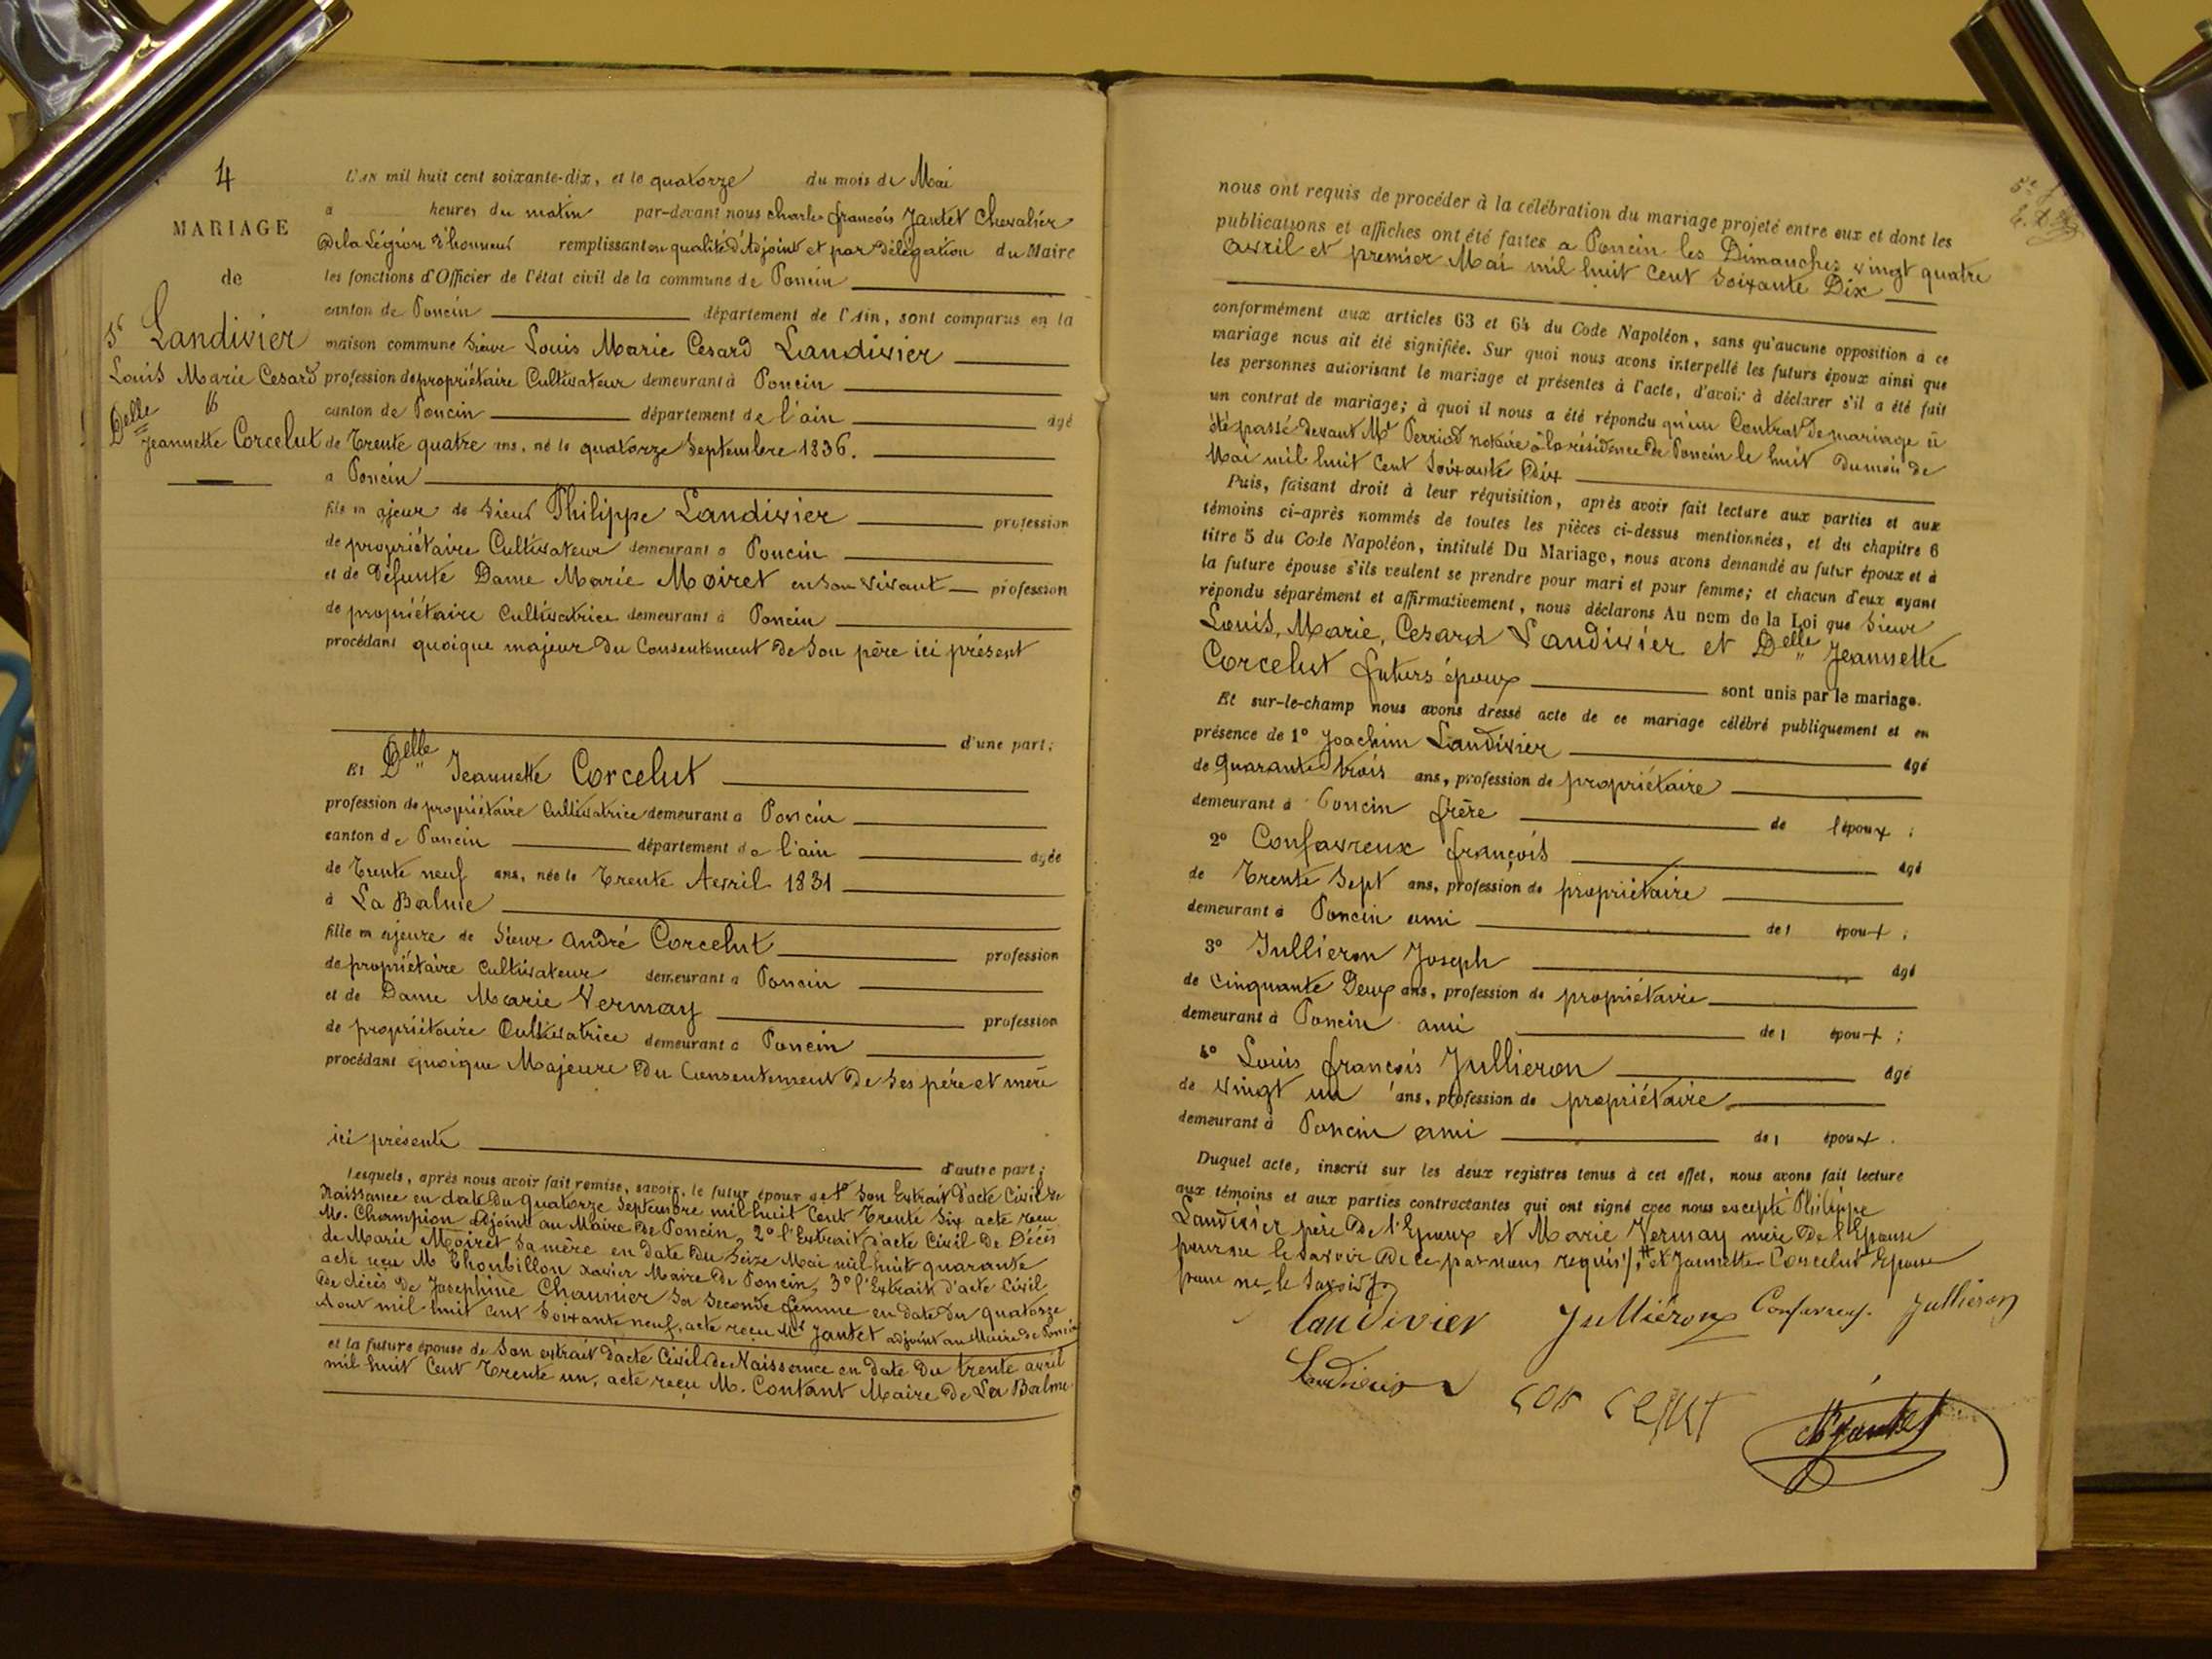 4
MARIAGE
de
Sr Landivier
Louis Marie Cesard
&
Delle Jeannette Corcelut
L'an mil huit cent soixante-dix, et le quatorze du mois de Mai
a heures du matin par-devant nous charles françois Jantet Chevalier
De la Légion d'honneur remplissant en qualité d'Adjoint et par délégation du Maire
les fonctions d'Officier de l'état civil de la commune de Poncin
canton de Poncin département de l'Ain, sont comparus en la
maison commune Sieur Louis Marie Cesard Landivier
profession de propriétaire Cultivateur demeurant à Poncin
canton de Poncin département de l'ain agé
de Trente quatre ans, né le quatorze Septembre 1836.
a Poncin
fils majeur de Sieur Philippe Landivier profession
de propriétaire Cultivateur demeurant a Poncin
et de Défunte Dame Marie Moiret en son vivant profession
de propriétaire Cultivatrice demeurant à Poncin
procédant quoique majeur Du Consentement De Son père ici présent
d'une part;
Et Delle Jeannette Corcelut
profession de propriétaire Cultivatrice demeurant a Poncin
canton de Poncin département de l'ain agée
de Trente neuf ans, née le Trente Avril 1831
à La Balme
fille majeure de Sieur André Corcelut profession
de propriétaire Cultivateur demeurant a Poncin
et de Dame Marie Vermay profession
de propriétaire Cultivatrice demeurant a Poncin
procédant quoique Majeure Du Consentement De Ses père et mère
ici présente
d'autre part;
Lesquels, après nous avoir fait remise, savoir, le futur époux de 1º Son Extrait d'acte Civil de
Naissance en date du Quatorze Septembre mil huit Cent Trente Six acte reçu
M. Champion adjoint au Maire de Poncin, 2º l'Extrait d'acte Civil de Décès
de Marie Moiret Sa mère en date Du Seize Mai mil huit quarante
acte reçu M Thoubillon Xavier Maire de Poncin, 3º l'Extrait d'acte Civil
de décès de Josephine Chaunier Sa Seconde femme en date Du quatorze
Aout mil huit cent Soixante neuf, acte reçu Mr Jantet adjoint au Maire de Poncin
et la future épouse de Son extrait d'acte Civil de Naissance en date Du trente avril
mil huit Cent Trente un, acte reçu M. Contant Maire de La Balme
nous ont requis de procéder à la célébration du mariage projeté entre eux et dont les
publications et affiches ont été faites a Poncin les Dimanches vingt quatre
avril et premier Mai mil huit Cent Soixante Dix
conformément aux articles 63 et 64 du Code Napoléon, sans qu'aucune opposition à ce
mariage nous ait été signifiée. Sur quoi nous avons interpellé les futurs époux ainsi que
les personnes autorisant le mariage et présentes à l'acte, d'avoir à déclarer s'il a été fait
un contrat de mariage; à quoi il nous a été répondu qu'un Contrat De mariage a
été passé devant Mr Perriod notaire à la résidence De Poncin le huit Du mois de
Mai mil huit Cent Soixante Dix
Puis, faisant droit à leur réquisition, après avoir fait lecture aux parties et aux
témoins ci-après nommés de toutes les pièces ci-dessus mentionnées, et du chapitre 6
titre 5 du Code Napoléon, intitulé Du Mariage, nous avons demandé au futur époux et à
la future épouse s'ils veulent se prendre pour mari et pour femme; et chacun d'eux ayant
répondu séparément et affirmativement, nous déclarons Au nom de la Loi que Sieur
Louis, Marie, Cesard Landivier et Delle Jeannette
Corcelut futurs époux sont unis par le mariage.
Et sur-le-champ nous avons dressé acte de ce mariage célébré publiquement et en
présence de 1º Joachim Landivier agé
de Quarante trois ans, profession de propriétaire
demeurant à Poncin frère de l'époux;
2º Confavreux françois agé
de Trente Sept ans, profession de propriétaire
demeurant à Poncin ami de l époux;
3º Jullieron Joseph agé
de Cinquante Deux ans, profession de propriétaire
demeurant à Poncin ami de l époux;
4º Louis françois Jullieron agé
de vingt un ans, profession de propriétaire
demeurant à Poncin ami de l époux.
Duquel acte, inscrit sur les deux registres tenus à cet effet, nous avons fait lecture
aux témoins et aux parties contractantes qui ont signé avec nous excepté Philippe
Landivier père De l'Epoux et Marie Vermay mère De l'Epouse
pour ne le Savoir De ce par nous requis, et Jeannette Corcelut Epouse
pour ne le Savoir
Landivier Jullieron Confavreux Jullieron
Landivier cor celut Ch Jantet